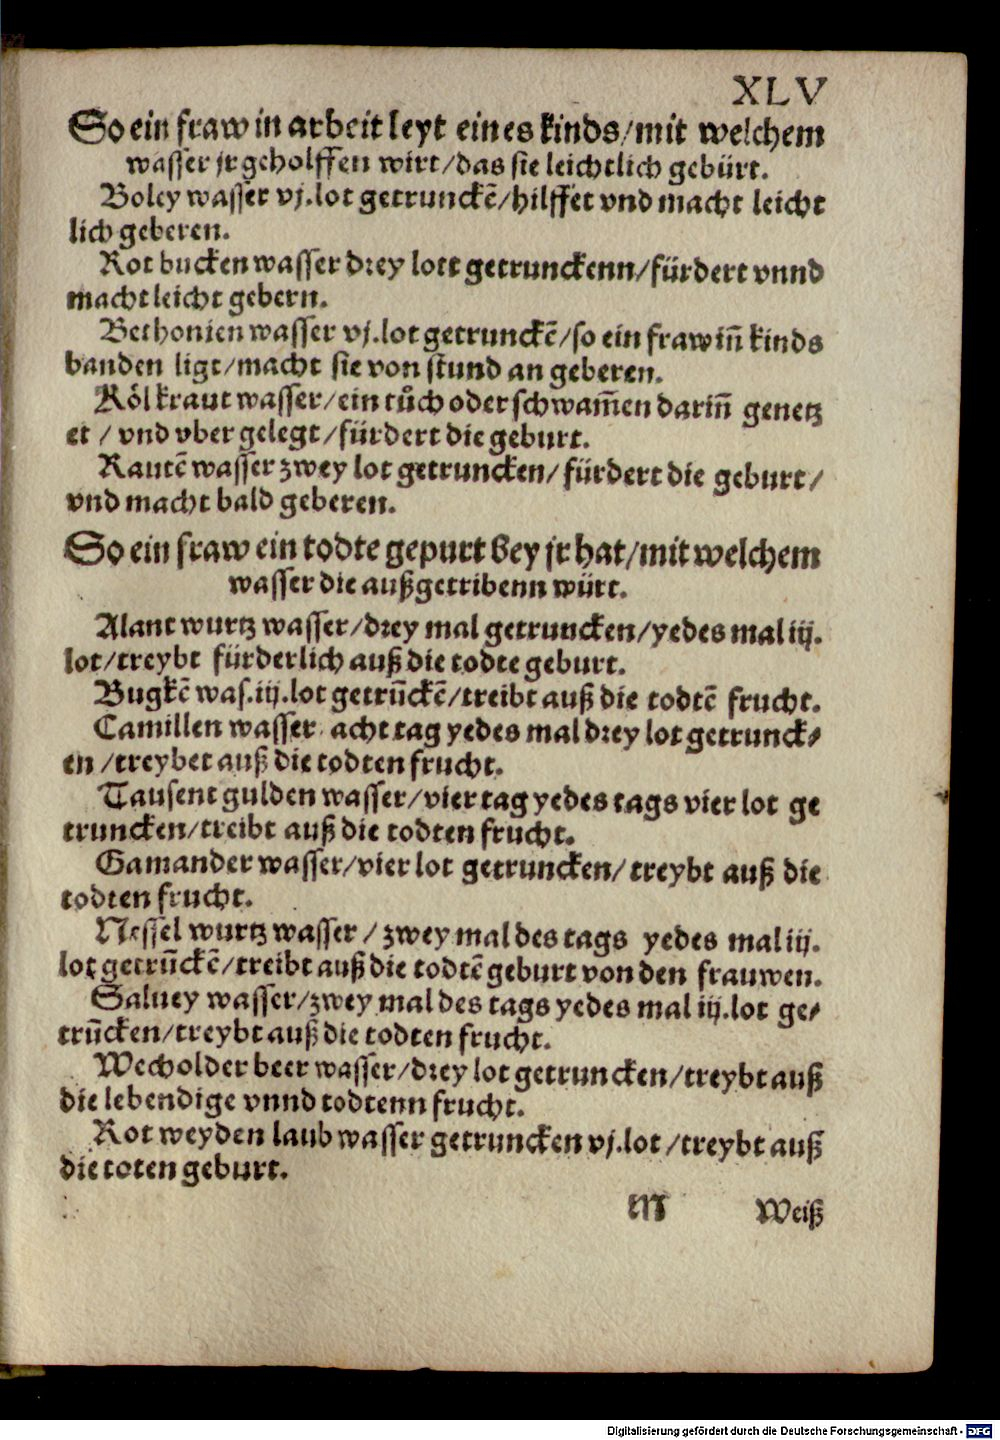 XLV
So ein fraw in arbeit leyt eines kinds/mit welchem
wasser jr geholffen wirt/das sie leichtlich gebürt.
Boley wasser vj.lot getrunckē/hilffet vnd macht leicht
lich geberen.
Rot bucken wasser drey lott getrunckenn/fürdert vnnd
macht leicht gebern.
Bethonien wasser vj.lot getrunckē/so ein fraw in̄ kinds
banden ligt/macht sie von stund an geberen.
Kölkraut wasser/ein tůch oder schwam̄en darin̄ genetz
et / vnd vber gelegt/fürdert die geburt.
Rautē wasser zwey lot getruncken/fürdert die geburt/
vnd macht bald geberen.
So ein fraw ein todte gepurt bey jr hat/mit welchem
wasser die außgetribenn würt.
Alant wurtz wasser/drey mal getruncken/yedes mal iij.
lot/treybt fürderlich auß die todte geburt.
Bugkē was.iij.lot getrūckē/treibt auß die todtē frucht.
Camillen wasser acht tag yedes mal drey lot getrunck⸗
en /treybet auß die todten frucht.
Tausent gulden wasser/vier tag yedes tags vier lot ge
truncken/treibt auß die todten frucht.
Gamander wasser/vier lot getruncken/treybt auß die
todten frucht.
Nessel wurtz wasser / zwey mal des tags yedes mal iij.
lot getrūckē/treibt auß die todtē geburt von den frauwen.
Saluey wasser/zwey mal des tags yedes mal iij.lot ge⸗
trūcken/treybt auß die todten frucht.
Wecholder beer wasser/drey lot getruncken/treybt auß
die lebendige vnnd todtenn frucht.
Rot weyden laub wasser getruncken vj.lot /treybt auß
die toten geburt.
M Weiß
Digitalisierung gefördert durch die Deutsche Forschungsgemeinschaft - DFG